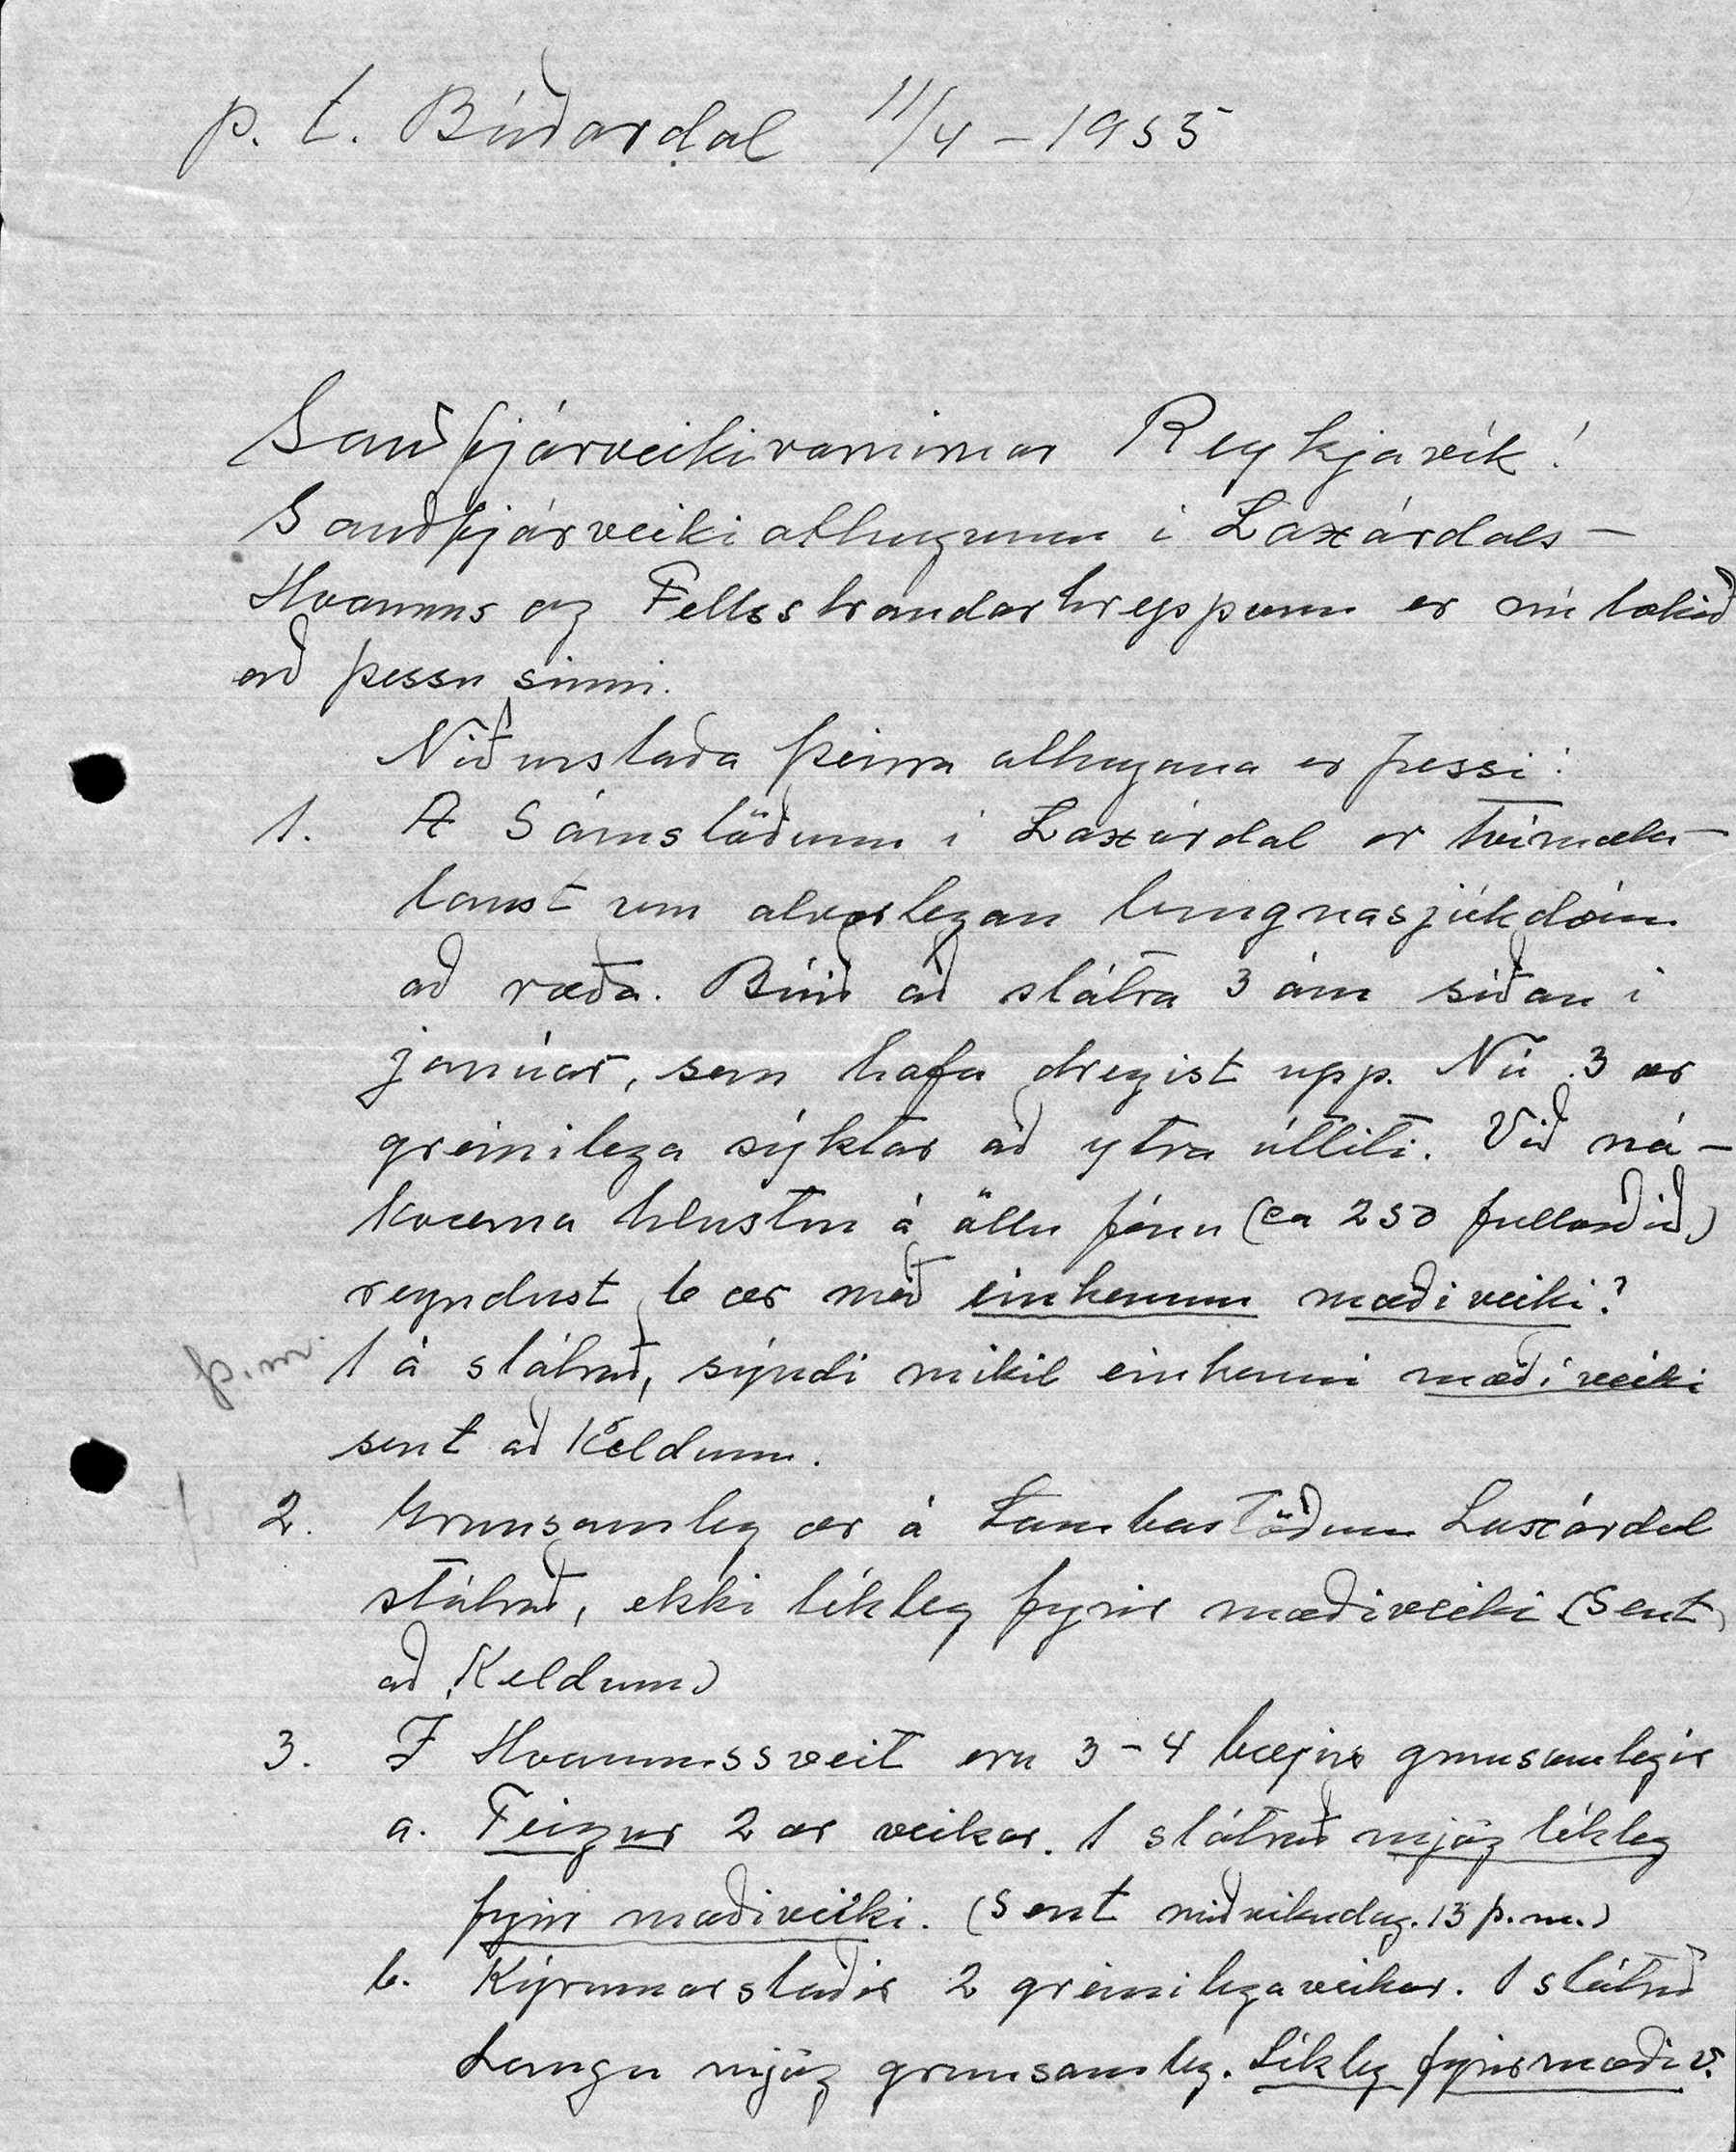 p. t. Búðardal 11/4 – 1955
Sauðfjárveikivarnirnar Reykjavík!
Sauðfjárveikiathugunum í Laxárdals–
Hvamms og Fellsstrandarhreppum er nú lokið
að þessu sinni.
Niðurstaða þeirra athugana er þessi:
1. Á Sámstöðum í Laxárdal er tvímæla–
laust um alvarlegan lungnasjúkdóm
að ræða. Búið að slátra 3 ám síðan í
janúar, sem hafa dregist upp. Nú 3 ær
greinilega sýktar að ytra útliti. Við ná–
kvæma hlustun á öllu fénu (ca 250 fullorðið)
reyndust 6 ær með einkennum mæðiveiki?
þ.m. 1 á slátrað, sýndi mikil einkenni mæðiveiki
sent að Keldum.
2. Grunsamleg ær á Lambastöðum Laxárdal
slátrað, ekki líkleg fyrir mæðiveiki (sent
að Keldum)
3. Í Hvammssveit eru 3–4 bæjir grunsamlegir
a. Teigur 2 ær veikar. 1 slátrað mjög líkleg
fyrir mæðiveiki. (Sent miðvikudag. 13 þ.m.)
b. Kýrunnarstaðir 2 greinilega veikar. 1 slátrað
Lungu mjög grunsamleg. Líkleg fyrir mæðiv.